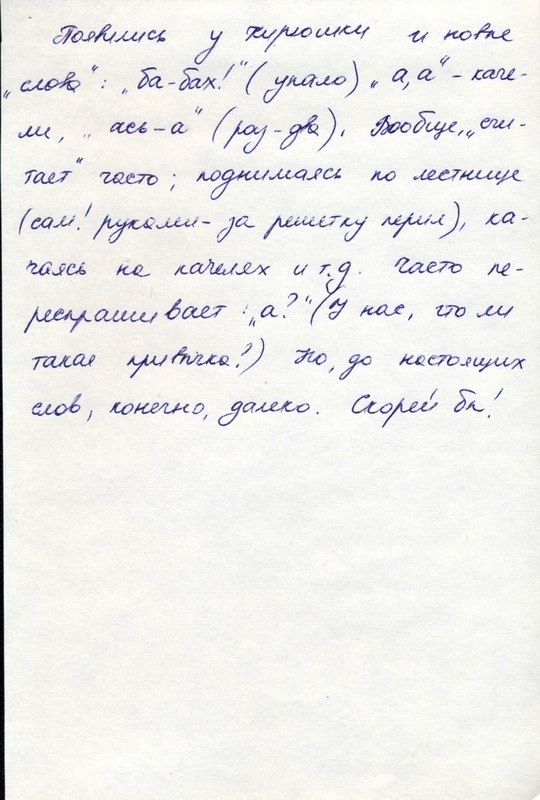 Появились у Кирюшки и новые
„слова“: „ба-бах!“ (упало) „а, а“ - каче-
ли, „ась-а“ (раз-два). Вообще, „счи-
тает“ часто; поднимаясь по лестнице
(сам! руками - за решетку перил), ка-
чаясь на качелях и т.д. Часто пе-
респрашивает: „а?“ (У нас, что ли
такая привычка?) Но, до настоящих
слов, конечно, далеко. Скорей бы!